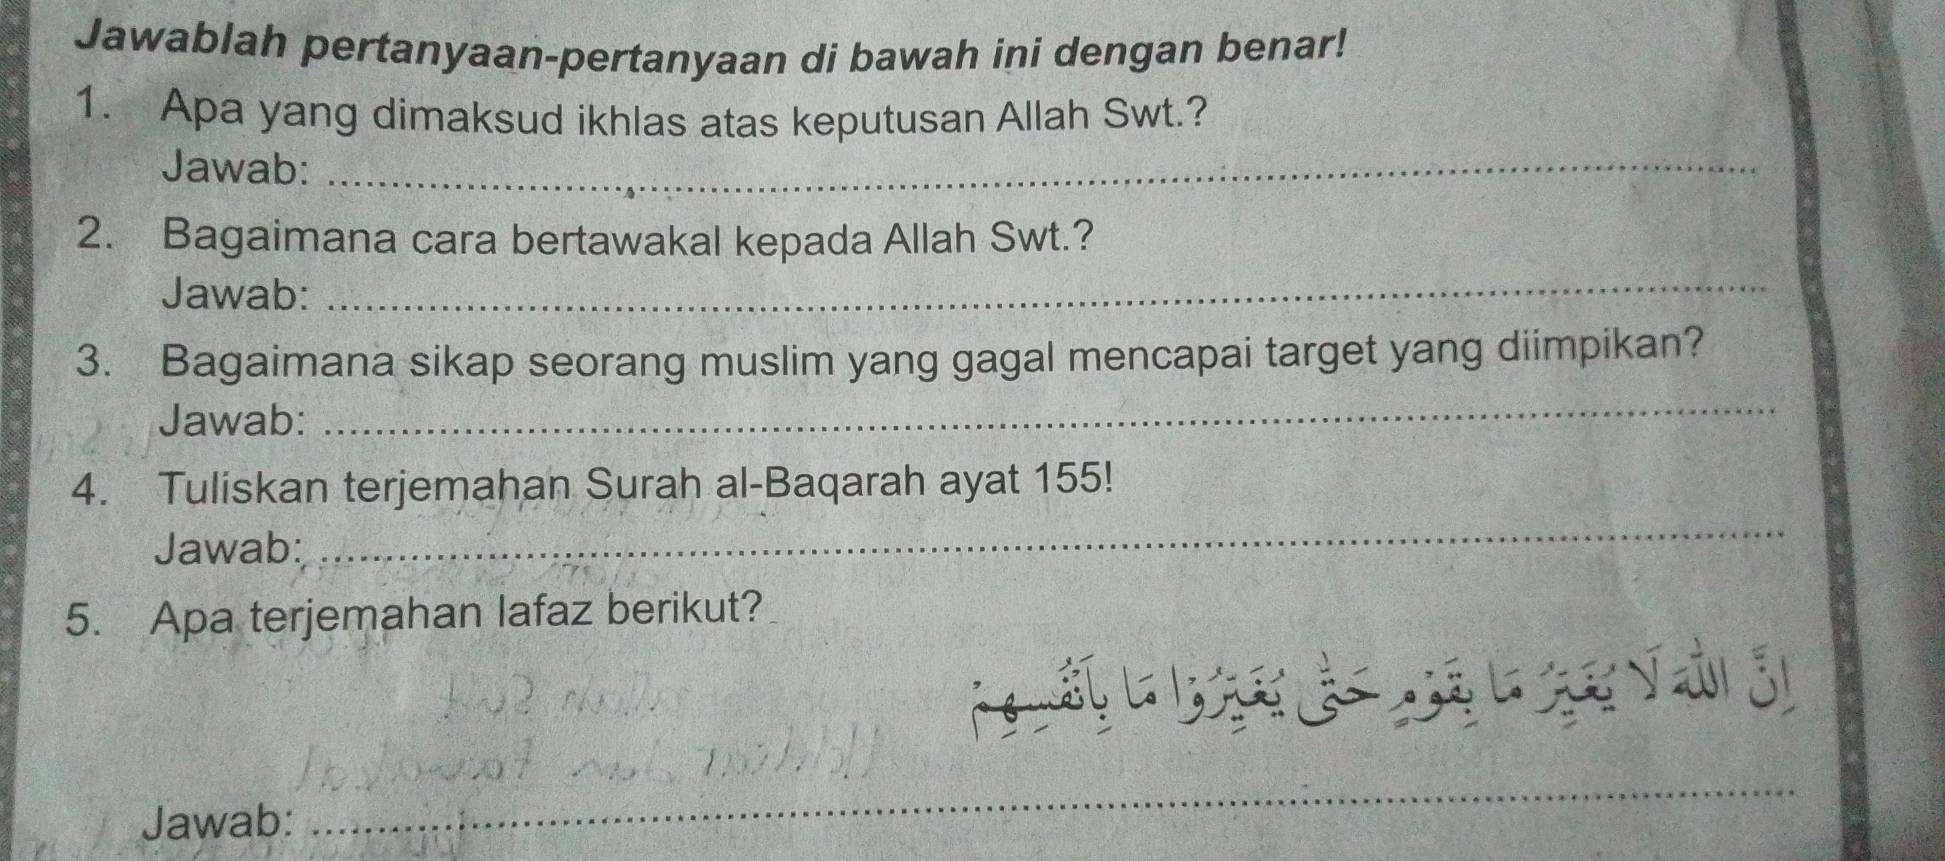 Jawablah pertanyaan-pertanyaan di bawah ini dengan benar!
1. Apa yang dimaksud ikhlas atas keputusan Allah Swt.?
Jawab: ........................................................
2. Bagaimana cara bertawakal kepada Allah Swt.?
Jawab: ........................................................
3. Bagaimana sikap seorang muslim yang gagal mencapai target yang diimpikan?
Jawab: ........................................................
4. Tuliskan terjemahan Surah al-Baqarah ayat 155!
Jawab: ........................................................
5. Apa terjemahan lafaz berikut?
إِنَّ اللّٰهَ لَا يُغَيِّرُ مَا بِقَوْمٍ حَتّٰى يُغَيِّرُوْا مَا بِأَنْفُسِهِمْ
Jawab: ........................................................